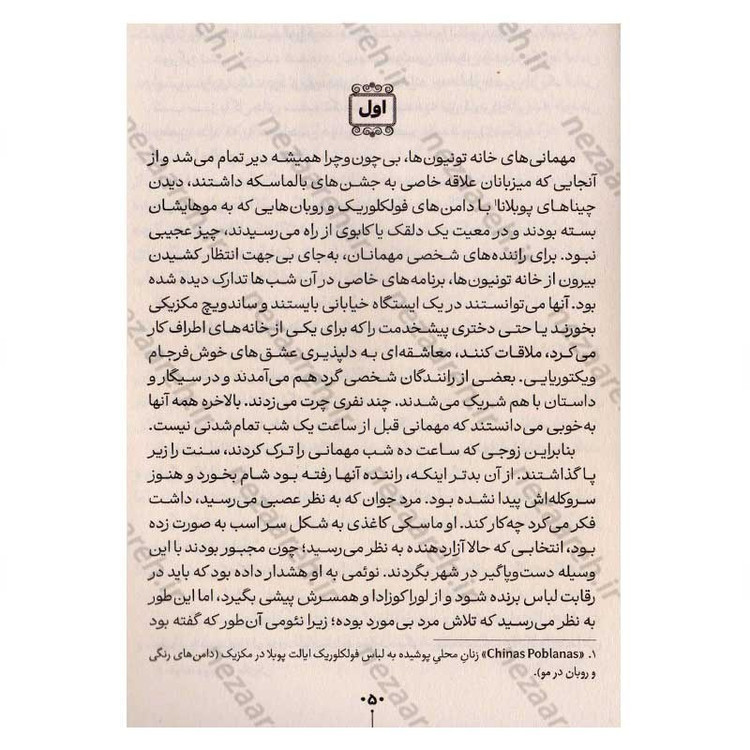 اول
مهمانی‌های خانه تونیون‌ها، بی‌چون‌وچرا همیشه دیر تمام می‌شد و از
آنجایی که میزبانان علاقه خاصی به جشن‌های بالماسکه داشتند، دیدن
چیناهای پوبلانا۱ با دامن‌های فولکلوریک و روبان‌هایی که به موهایشان
بسته بودند و در معیت یک دلقک یا کابوی از راه می‌رسیدند، چیز عجیبی
نبود. برای راننده‌های شخصی مهمانان، به‌جای بی‌جهت انتظار کشیدن
بیرون از خانه تونیون‌ها، برنامه‌های خاصی در آن شب‌ها تدارک دیده شده
بود. آنها می‌توانستند در یک ایستگاه خیابانی بایستند و ساندویچ مکزیکی
بخورند یا حتی دختری پیشخدمت را که برای یکی از خانه‌های اطراف کار
می‌کرد، ملاقات کنند، معاشقه‌ای به دلپذیری عشق‌های خوش‌فرجام
ویکتوریایی. بعضی از رانندگان شخصی گرد هم می‌آمدند و در سیگار و
داستان با هم شریک می‌شدند. چند نفری چرت می‌زدند. بالاخره همه آنها
به‌خوبی می‌دانستند که مهمانی قبل از ساعت یک شب تمام‌شدنی نیست.
بنابراین زوجی که ساعت ده شب مهمانی را ترک کردند، سنت را زیر
پا گذاشتند. از آن بدتر اینکه، راننده آنها رفته بود شام بخورد و هنوز
سروکله‌اش پیدا نشده بود. مرد جوان که به نظر عصبی می‌رسید، داشت
فکر می‌کرد چه‌کار کند. او ماسکی کاغذی به شکل سر اسب به صورت زده
بود، انتخابی که حالا آزاردهنده به نظر می‌رسید؛ چون مجبور بودند با این
وسیله دست‌وپاگیر در شهر بگردند. نوئمی به او هشدار داده بود که باید در
رقابت لباس برنده شود و از لورا کوزادا و همسرش پیشی بگیرد، اما این‌طور
به نظر می‌رسید که تلاش مرد بی‌مورد بوده؛ زیرا نئومی آن‌طور که گفته بود
۱. «Chinas Poblanas» زنانِ محلیِ پوشیده به لباس فولکلوریک ایالت پوبلا در مکزیک (دامن‌های رنگی
و روبان در مو).
۰۵۰
nezaareh.ir